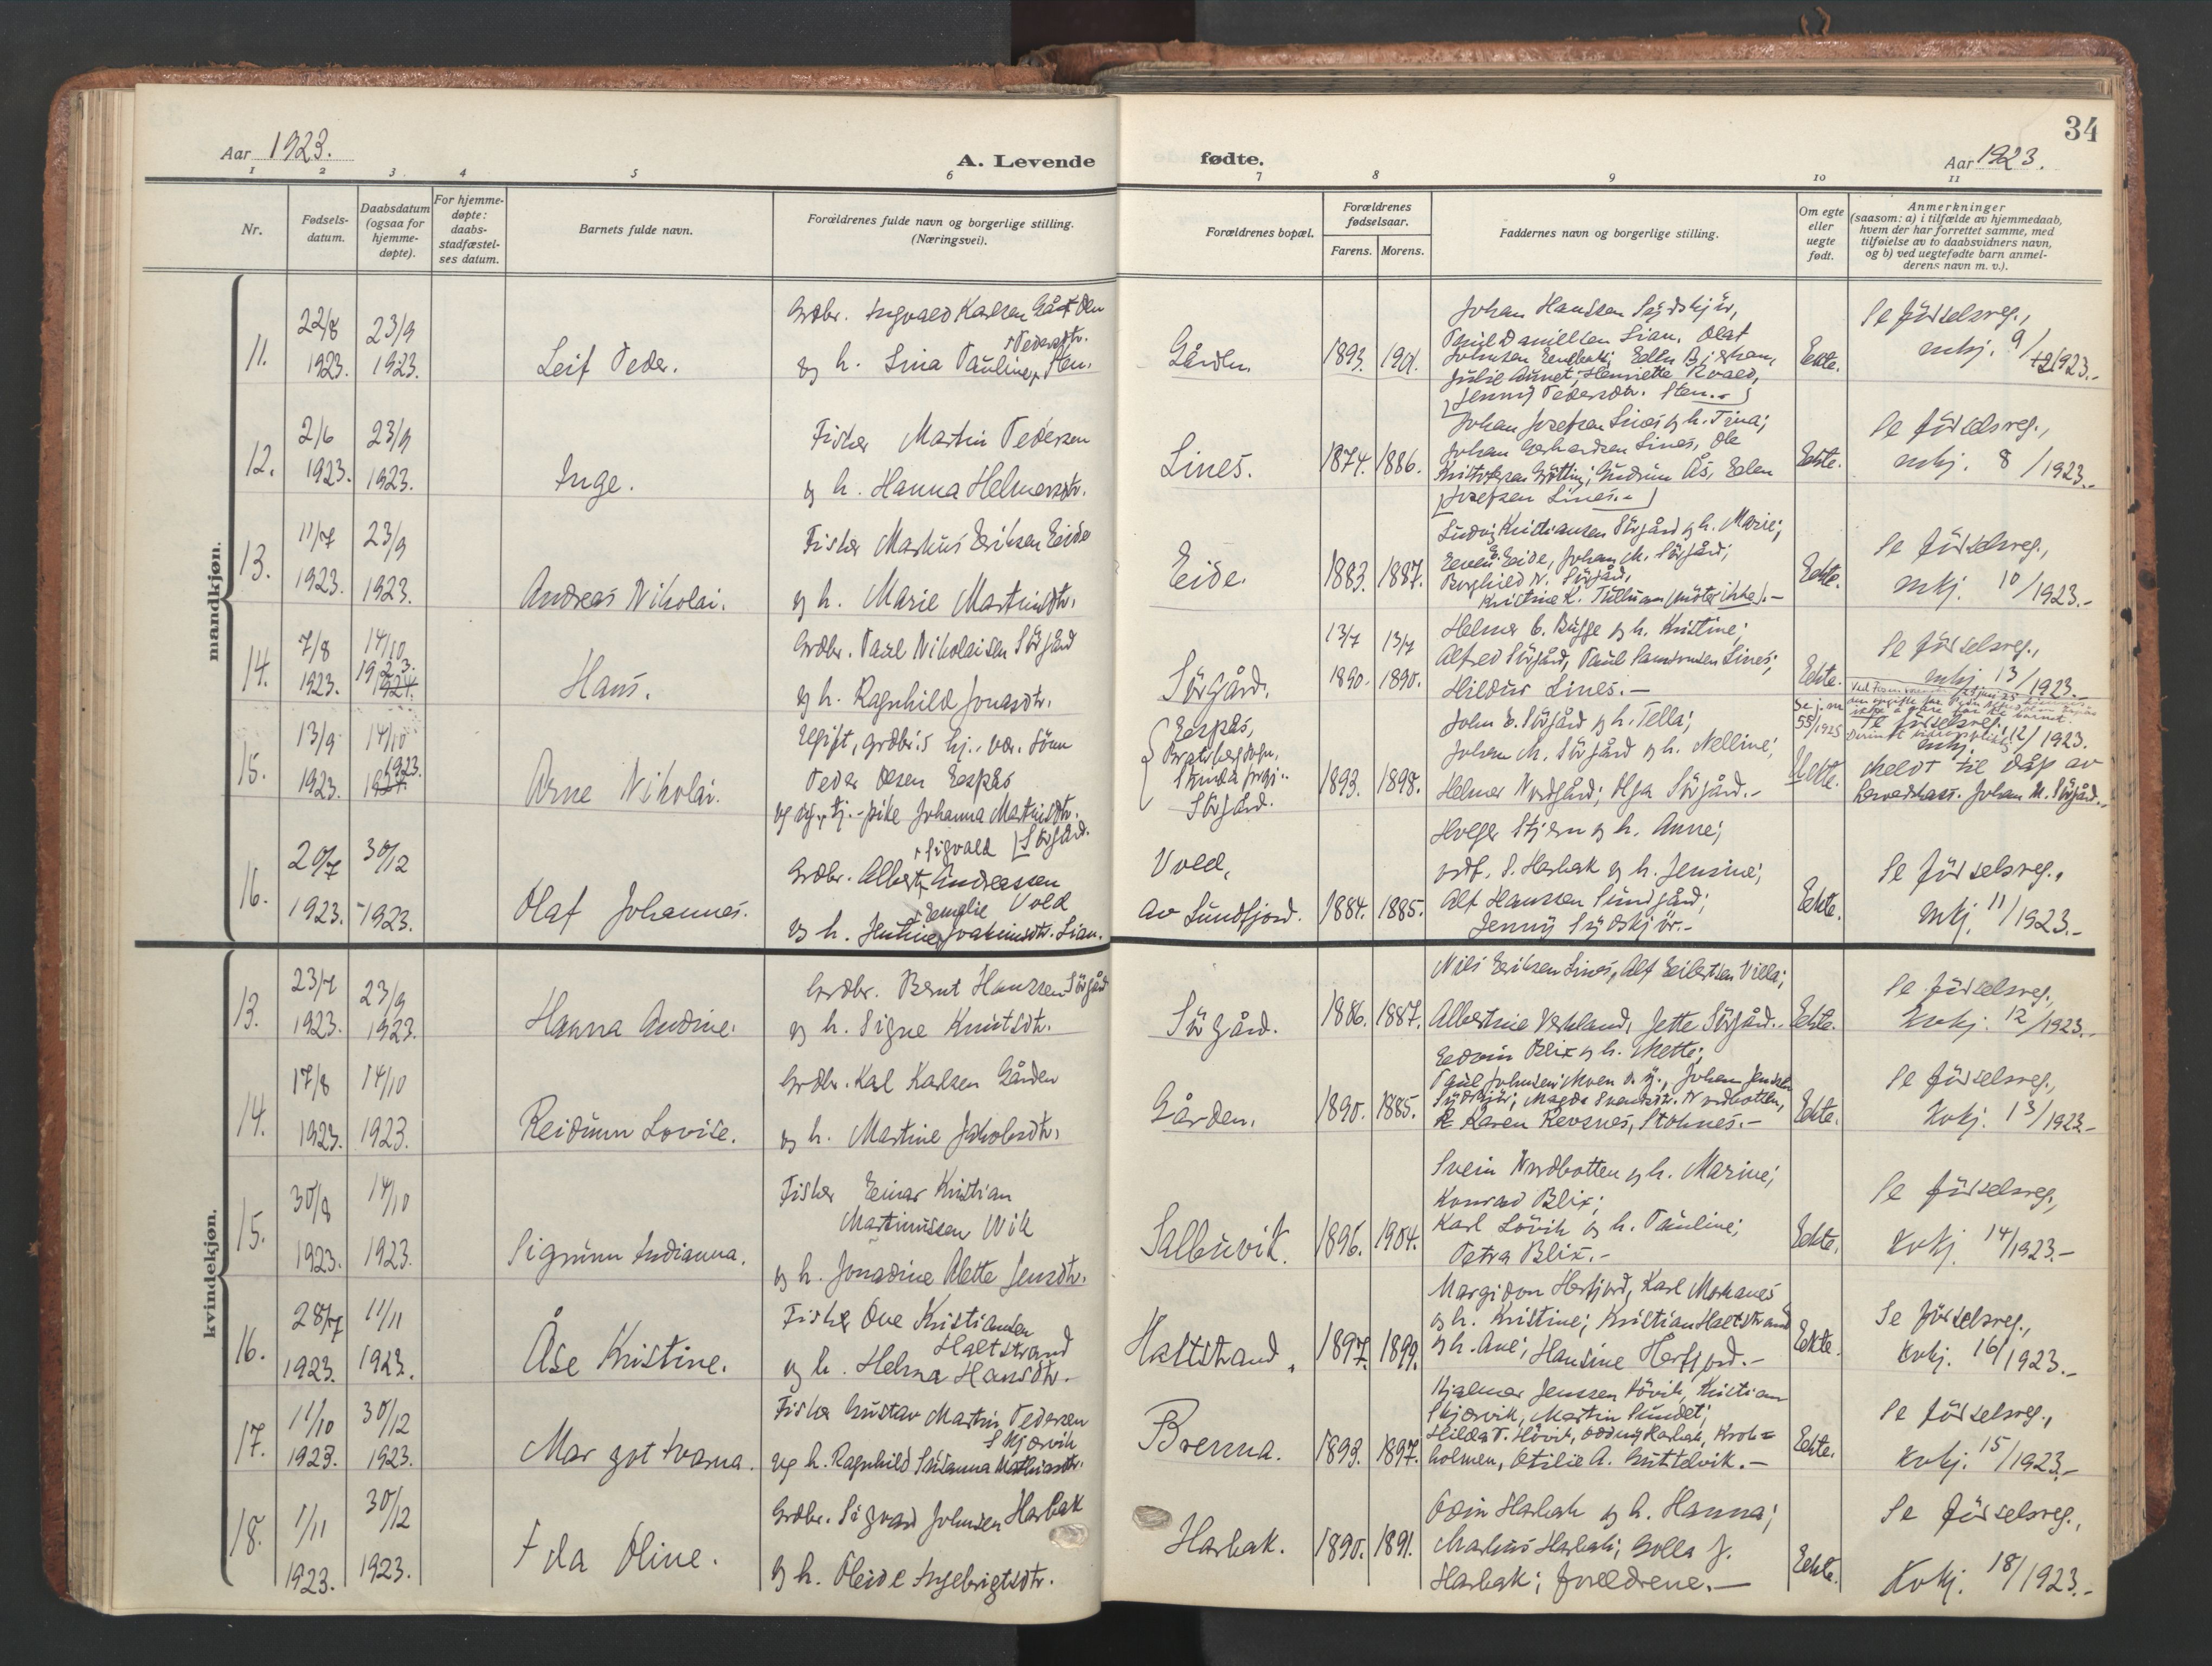 34
Aar 1923.
A. Levende fødte.
Aar 1923.
1 2 3 4 5 6 7 8 9 10 11
Nr.
Fødsels-
datum.
Daabsdatum
(ogsaa for
hjemme-
døpte).
For hjemme-
døpte:
daabs-
stadfæstel-
ses datum.
Barnets fulde navn.
Forældrenes fulde navn og borgerlige stilling.
(Næringsvei).
Forældrenes bopæl.
Forældrenes
fødselsaar.
Farens. Morens.
Faddernes navn og borgerlige stilling.
Om egte
eller
uegte
født.
Anmerkninger
(saasom: a) i tilfælde av hjemmedaab,
hvem der har forrettet samme, med
tilføielse av to daabsvidners navn,
og b) ved uegtefødte barn anmel-
derens navn m. v.).
mandkjøn.
11.
22/8
1923.
23/9
1923.
Leif Peder.
Grdbr. Ingvald Karlsen
Pedersdtr.
og h. Lina Pauline Sten.
Gården.
1893. 1901.
Johan Hanssen Sydskjör,
Paul Daniellsen Lian, Olaf
Julie Aunet, Henriette
Jenny Pedersdtr. Sten.-
Eekte.
Se födselsreg.,
mkj. 9/1923.-
12.
2/6
1923.
23/9
1923.
Inge.
Fisker Martin Pedersen
og h. Hanna Helmersdtr.
Lines.
1874. 1886.
Johan Josefsen Lines og h. Tina;
Johan Gerhardsen Lines, Ole
Kristofersen Grötting; Gudrun Ås, Edlen
Josefsen Lines.-
Eekte.
Se födselsreg.,
mkj. 8/1923.-
13.
11/7
1923.
23/9
1923.
Andreas Nikolai.
Fisker Markus Eriksen Eide
og h. Marie Martinsdtr.
Eide.
1883. 1887.
Ludvig Kristiansen Sörgård og h. Marie;
Eide, Johan M. Sörgård;
Borghild N. Sörgård,
Kristine K. (möter ikke).-
Eekte.
Se födselsreg.,
mkj. 10/1923.-
14.
7/8
1923.
14/10
1923.
1924.
Hans.
Grdbr. Paul Nikolaisen Sörgård
og h. Ragnhild Jonasdtr.
Sörgård.
13/7 13/7
1890. 1890.
Helmer C. Bugge og h. Kristine;
Alfred Sörgård, Paul Lines;
Hildur Lines.-
Eekte.
Se födselsreg.,
mkj. 13/1923.-
15.
13/9
1923.
14/10
1923.
1924.
Arne Nikolai.
Ugift, grdbr.s hj. vær. sönn
Peder Olsen Eespås
og ug. tj.-pike Johanna Martinsdtr.
Sörgård.
Eespås,
Bratsberg sogn,
Strinda prgj.-
Sörgård.
1893. 1898.
John E. Sörgård og h. Pella;
Johan M. Sörgård og h. Nelline;
Helmer Nordgård; Olga Sörgård.-
Se j.nr
55/1925
Uekte.
Se födselsreg.,
mkj. 12/1923.
Meldt til dåp av
Johan M. Sörgård.-
16.
20/7
1923.
30/12
1923.
Olaf Johannes.
Sigvald
Grdbr. Albert Andreassen
Vold
og h. Joakimsdtr. Lian.
Vold,
av Sundfjord.
1884. 1885.
Holger Stjern og h. Anne;
ordf. S. Harbak og h. Jensine;
Alf Hanssen Sundgård;
Jenny Sydskjör.-
Eekte.
Se födselsreg.,
mkj. 11/1923.-
kvindekjøn.
13.
23/7
1923.
23/9
1923.
Hanna Andrine.
Grdbr. Bernt Hanssen Sörgård
og h. Signe Knutsdtr.
Sörgård.
1886. 1887.
Nils Eriksen Lines, Alf Eilertsen Villa;
Albertine Verkland, Jette Sörgård.-
Eekte.
Se födselsreg.,
Kvkj. 12/1923.-
14.
17/8
1923.
14/10
1923.
Reidunn Lovise.
Grdbr. Karl Karlsen Gården
og h. Martine Jakobsdtr.
Gården.
1890. 1885.
Edvin Blix og h. Mette;
Paul Johnsen Moen d. y., Johan Jenssen
Sydskjör; Magda Svendsdtr. Nordbotten,
Karen Revsnes, Stoknes.-
Eekte.
Se födselsreg.,
Kvkj. 13/1923.-
15.
30/8
1923.
14/10
1923.
Sigrunn Indianna.
Fisker Einar Kristian
Martinussen Wik
og h. Jonardine Alette Jensdtr.
Salbuvik.
1896. 1904.
Svein Nordbotten og h. Marine;
Konrad Blix;
Karl Lövik og h. Pauline;
Petra Blix.-
Eekte.
Se födselsreg.,
Kvkj. 14/1923.-
16.
28/7
1923.
11/11
1923.
Åse Kristine.
Fisker Ove Kristiansen
Haltstrand
og h. Helma Hansdtr.
Haltstrand.
1897. 1899.
Margidon Herfjord, Karl Mekanes
og h. Kristine; Kristian Haltstrand
og h. Ane; Hansine Herfjord.-
Eekte.
Se födselsreg.,
Kvkj. 16/1923.-
17.
11/10
1923.
30/12
1923.
Margot Ivarna.
Fisker Gustav Martin Pedersen
Skjærvik
og h. Ragnhild Susanna
Brenna.
1893. 1897.
Hjalmar Jenssen Hövik, Kristian
Skjærvik, Martin Sundet;
Hilda P. Hövik, Oddny Harbak, Krok=
holmen, Otilie A. Guttelvik.-
Eekte.
Se födselsreg.,
Kvkj. 15/1923.-
18.
1/11
1923.
30/12
1923.
Ida Oline.
Grdbr. Sigvard Johnsen Harbak
og h. Oleide Ingebrigtsdtr.
Harbak.
1890. 1891.
Odin Harbak og h. Hanna;
Markus Harbak; Golla J.
Harbak; foreldrene.-
Eekte.
Se födselsreg.,
Kvkj. 18/1923.-